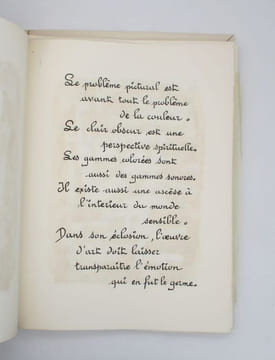 Le problème pictural est
avant tout le problème
de la couleur.
Le clair obscur est une
perspective spirituelle.
Les gammes colorées sont
aussi des gammes sonores.
Il existe aussi une ascèse à
l'interieur du monde
sensible.
Dans son éclosion, l'œuvre
d'art doit laisser
transparaître l'émotion
qui en fut le germe.